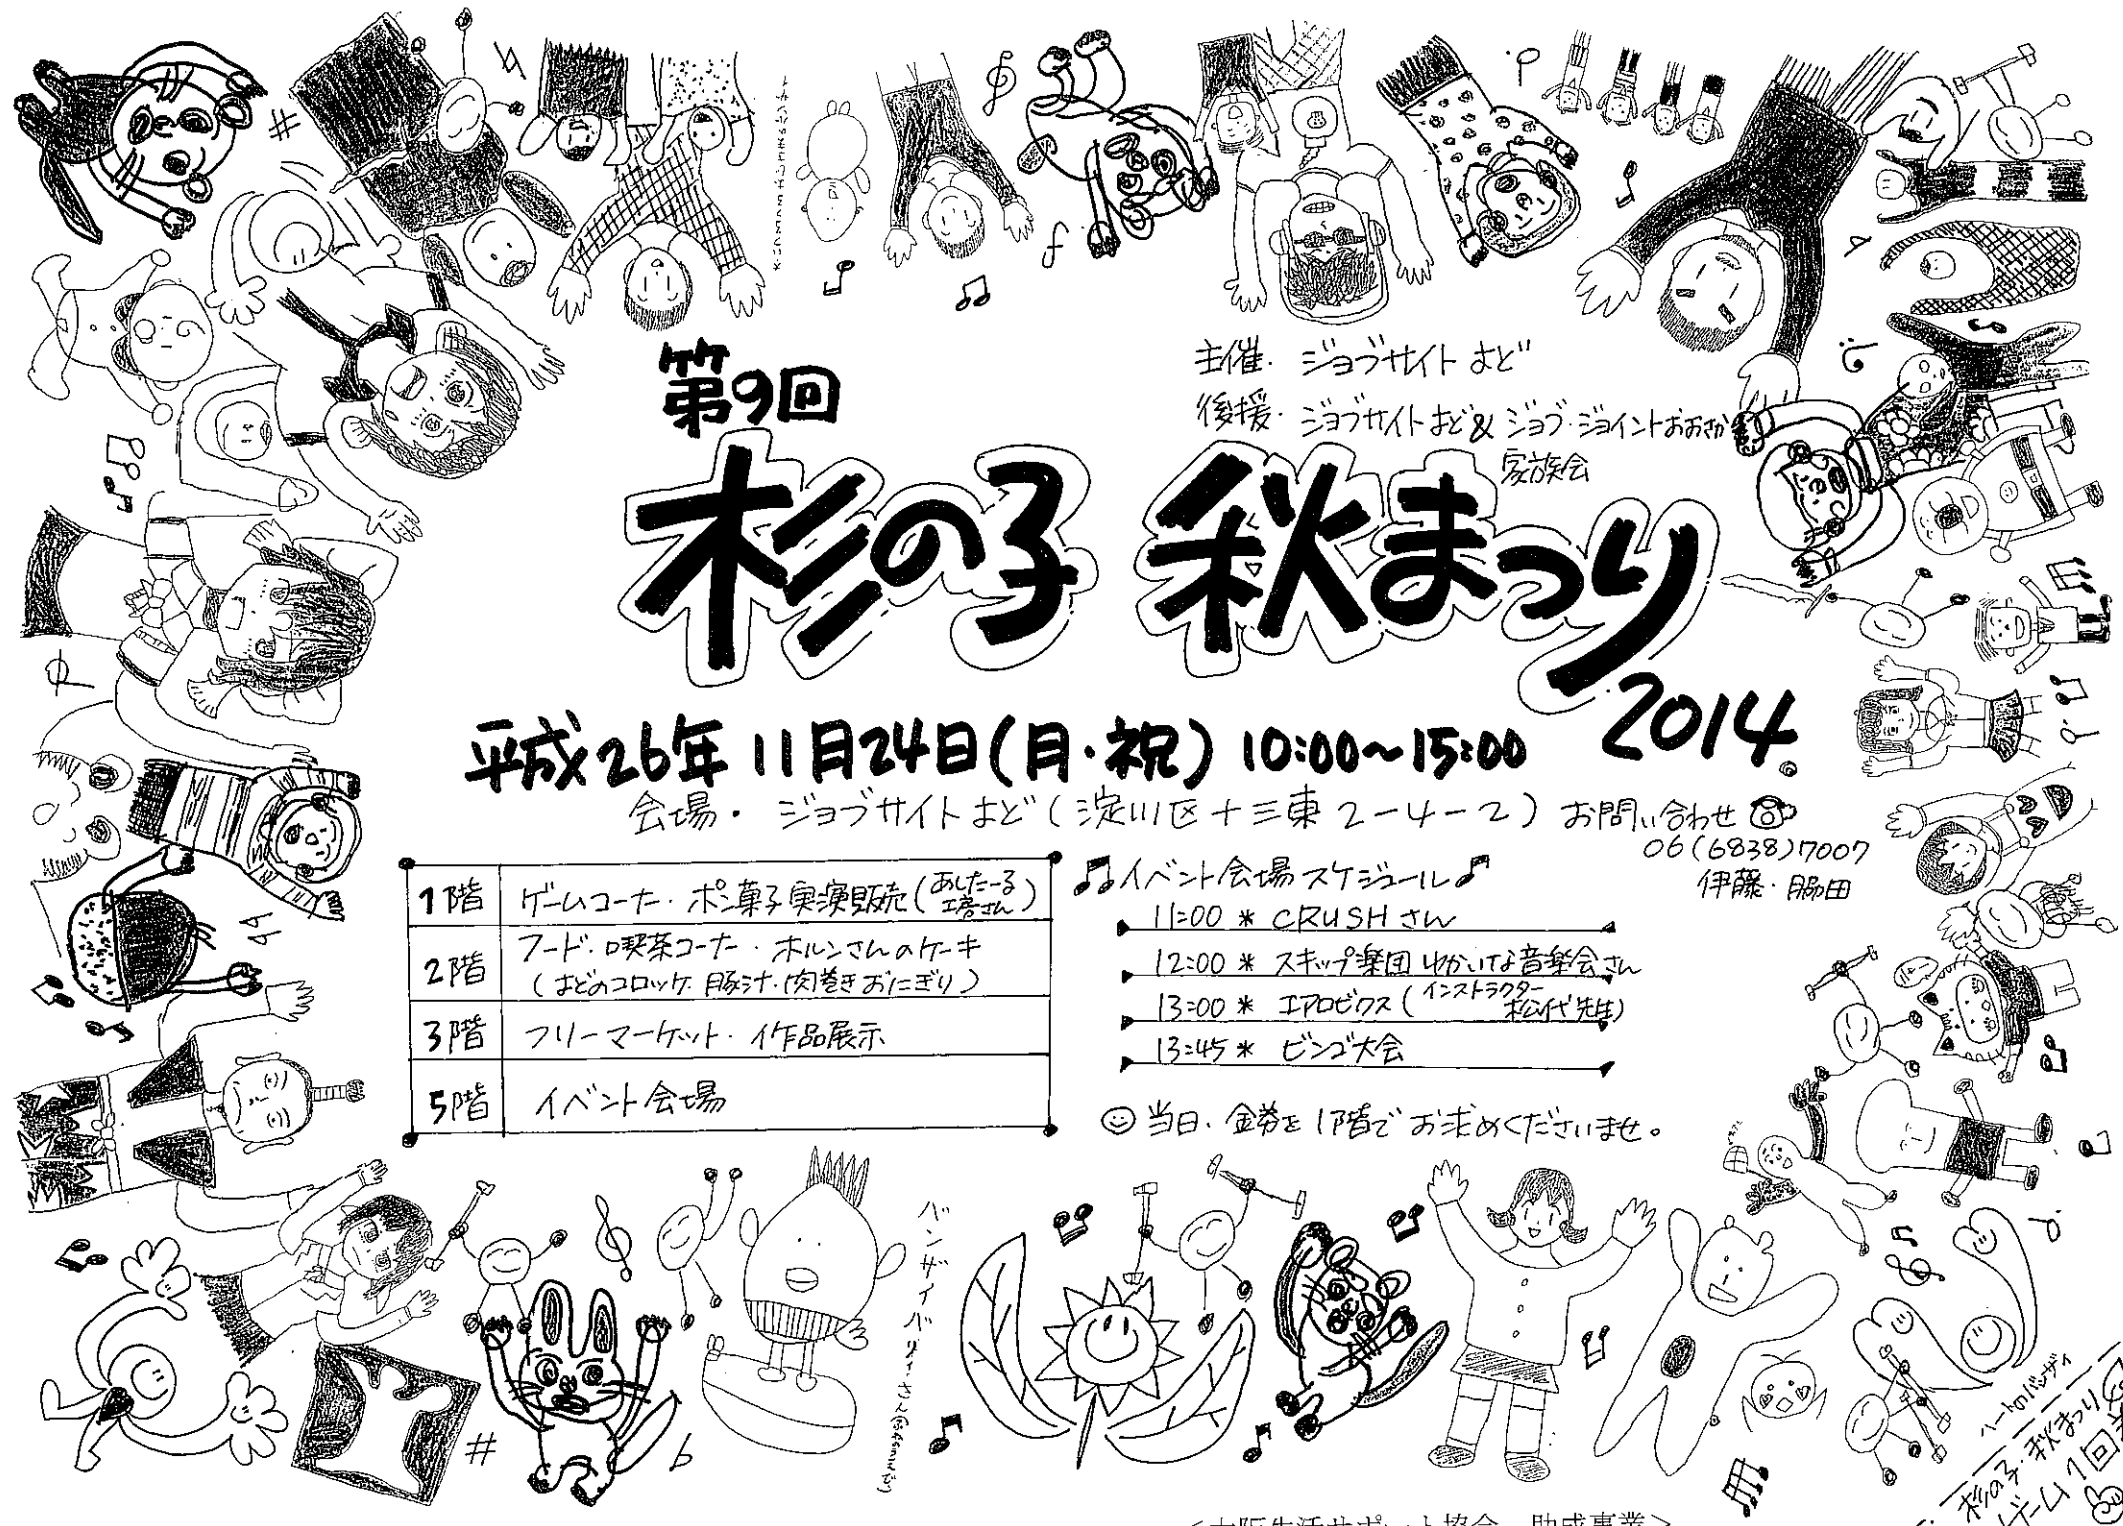 第9回
主催・ジョブサイト よど
後援・ジョブサイトよど & ジョブ・ジョイントおおさか
家族会
杉の子 秋まつり
2014
平成26年 11月24日(月・祝) 10:00〜15:00
会場・ジョブサイトよど(淀川区十三東2-4-2) お問い合わせ
06(6838)7007
伊藤・脇田
1階 ゲームコーナー・ポン菓子実演販売(あしたーる工房さん)
2階 フード・喫茶コーナー・ホルンさんのケーキ
(よどのコロッケ・豚汁・肉巻きおにぎり)
3階 フリーマーケット・作品展示
5階 イベント会場
イベント会場スケジュール
11:00 * CRUSHさん
12:00 * スキップ楽団ゆかいな音楽会さん
13:00 * エアロビクス(インストラクター 松代先生)
13:45 * ビンゴ大会
当日、金券を1階でお求めくださいませ。
ハートのバンザイ
杉の子・秋まつり
ゲーム1回
<大阪生活サポート協会 助成事業>